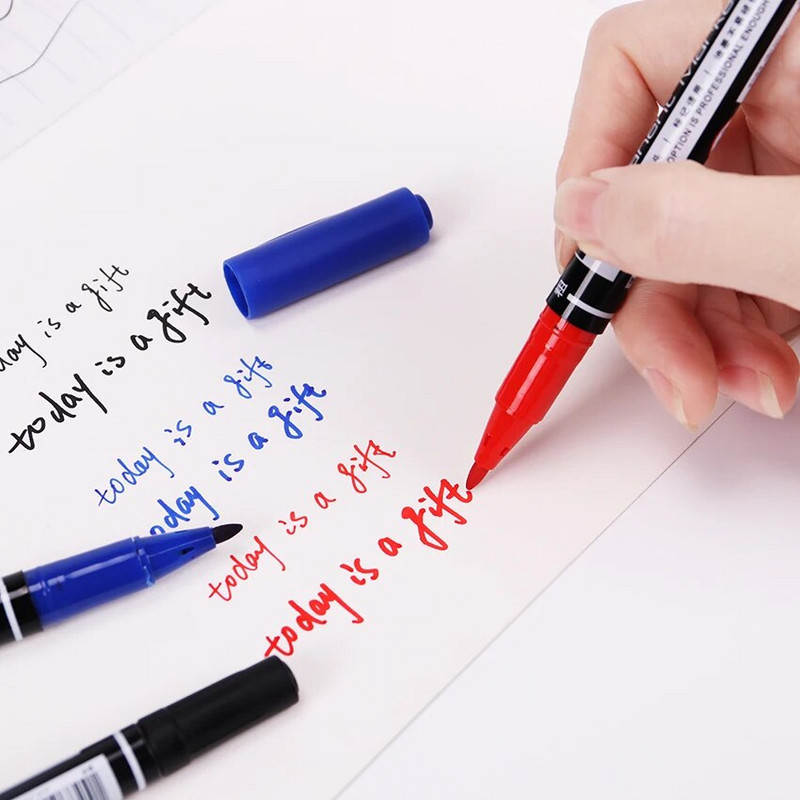 today is a gift
today is a gift
today is a gift
today is a gift
today is a gift
today is a gift
OPTION IS PROFESSIONAL ENOUGH